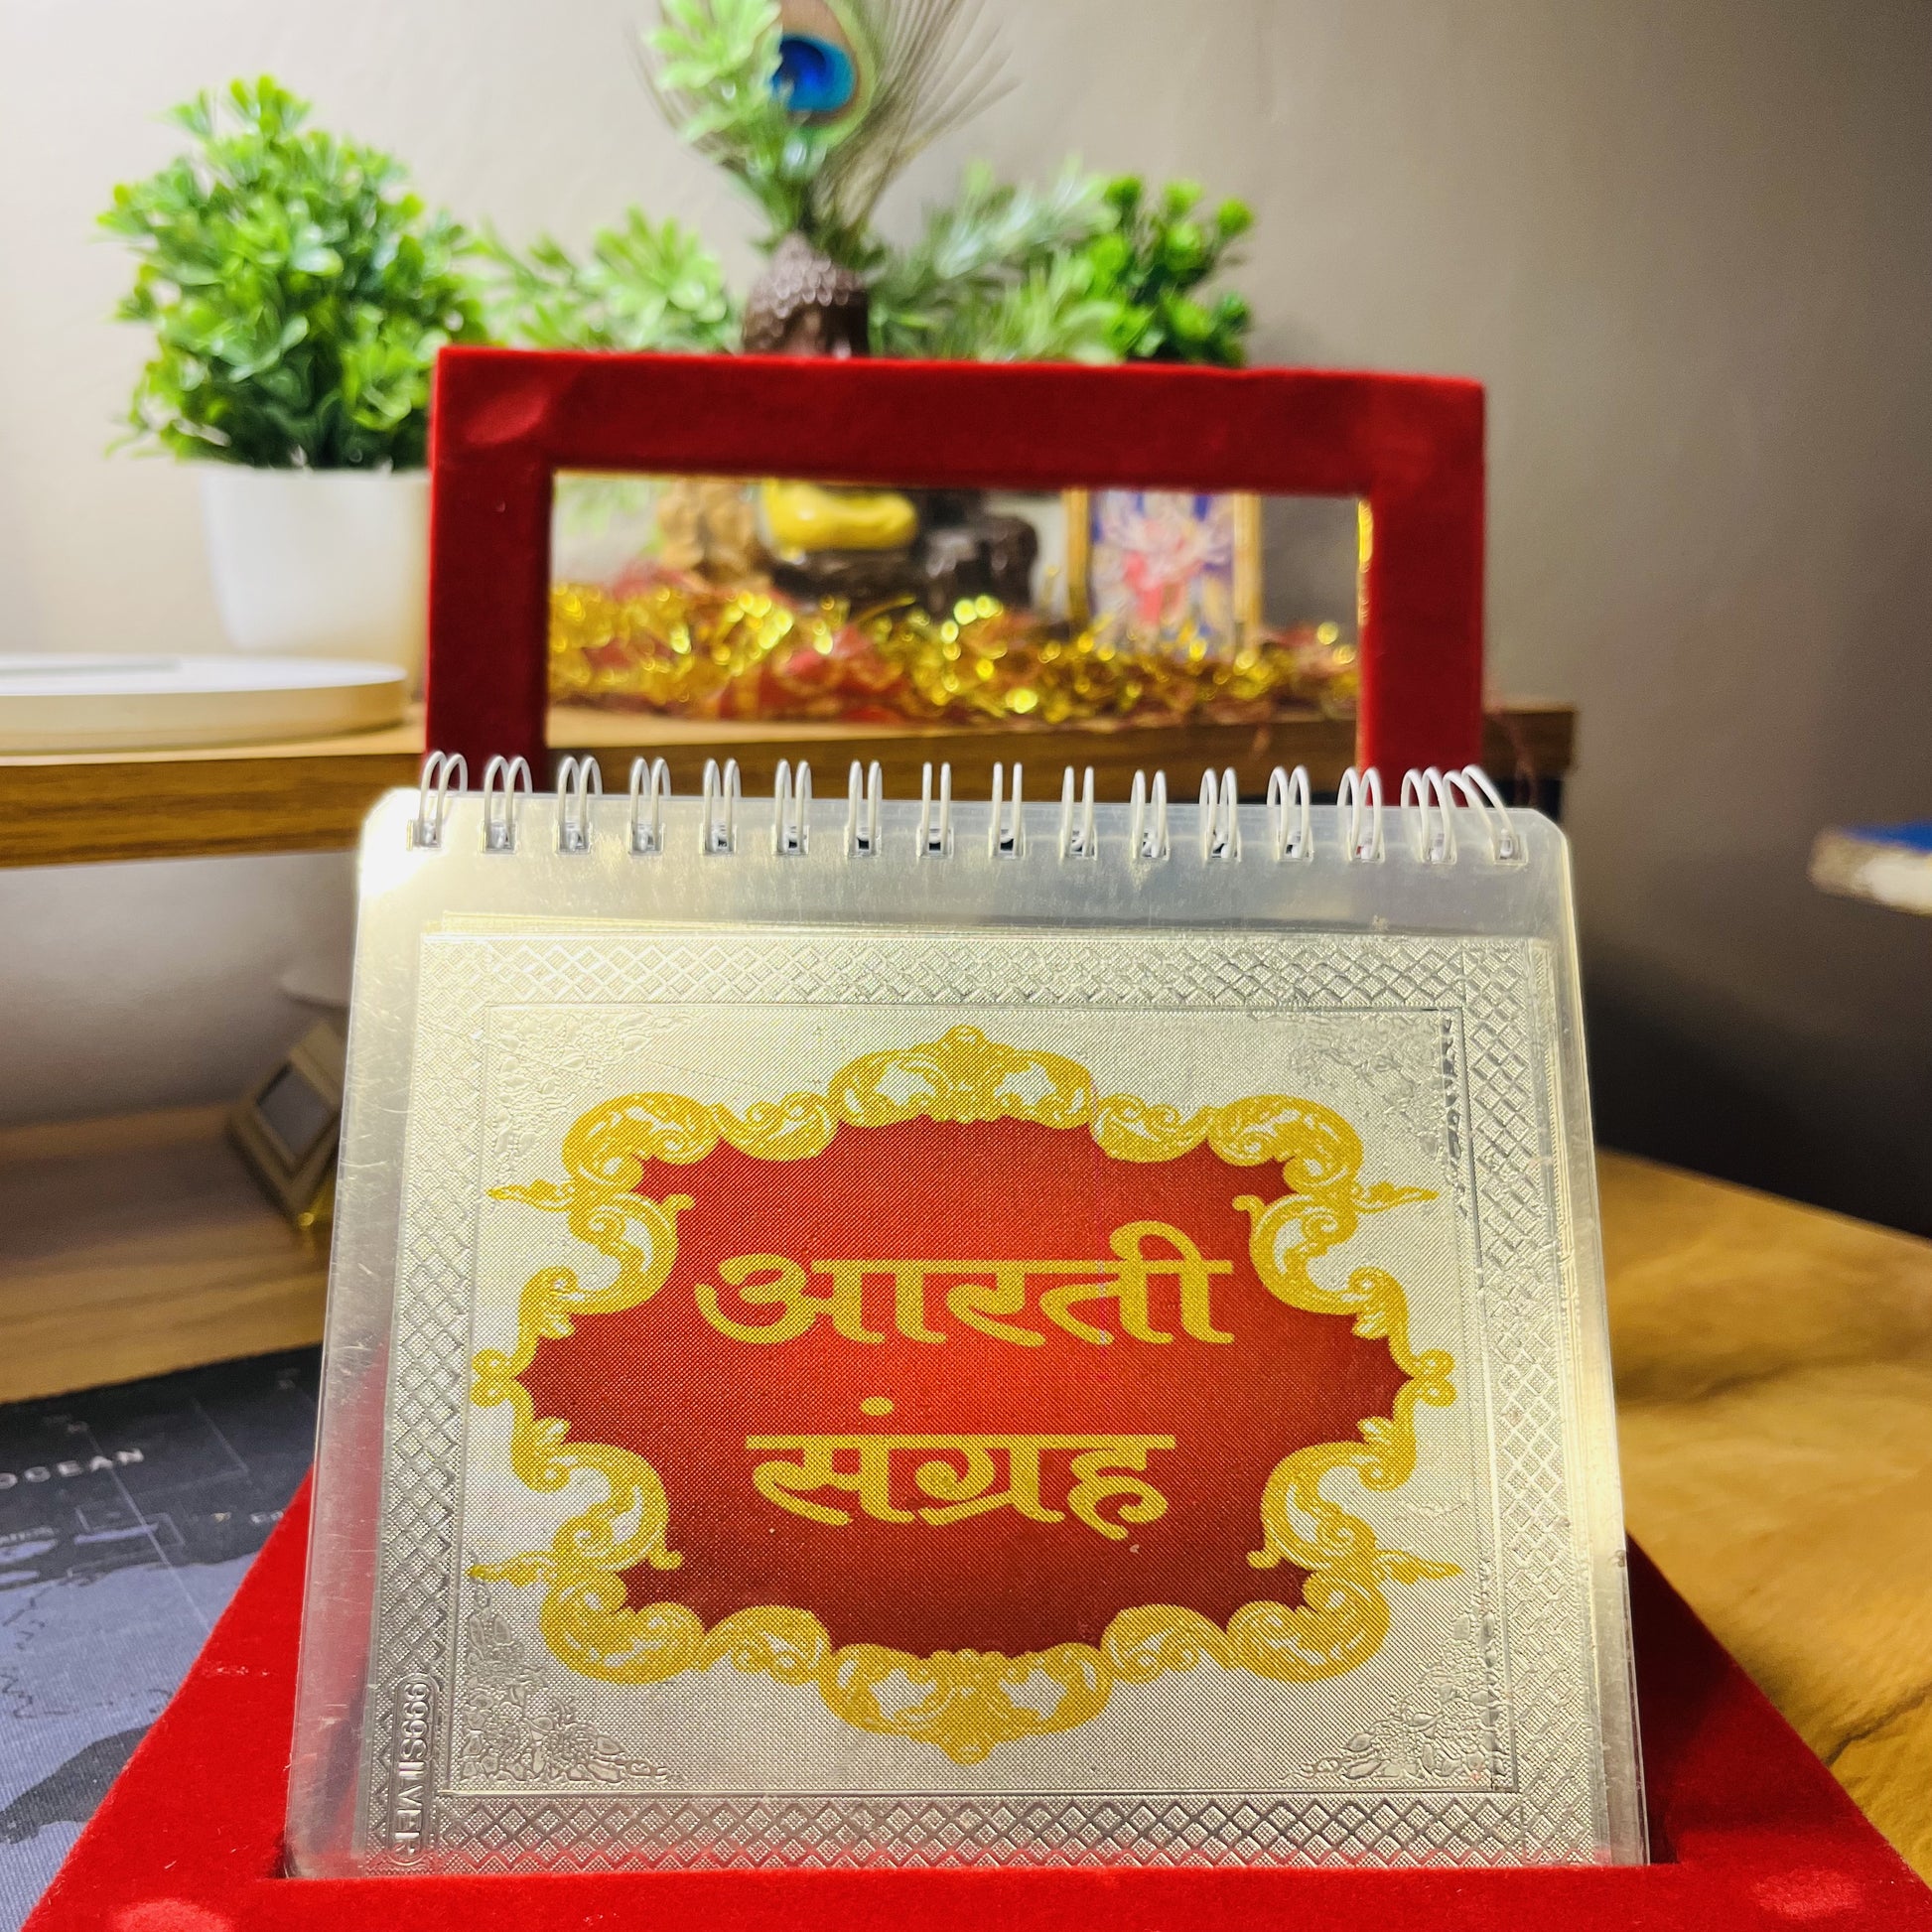 आरती
संग्रह
999SILVER
OCEAN